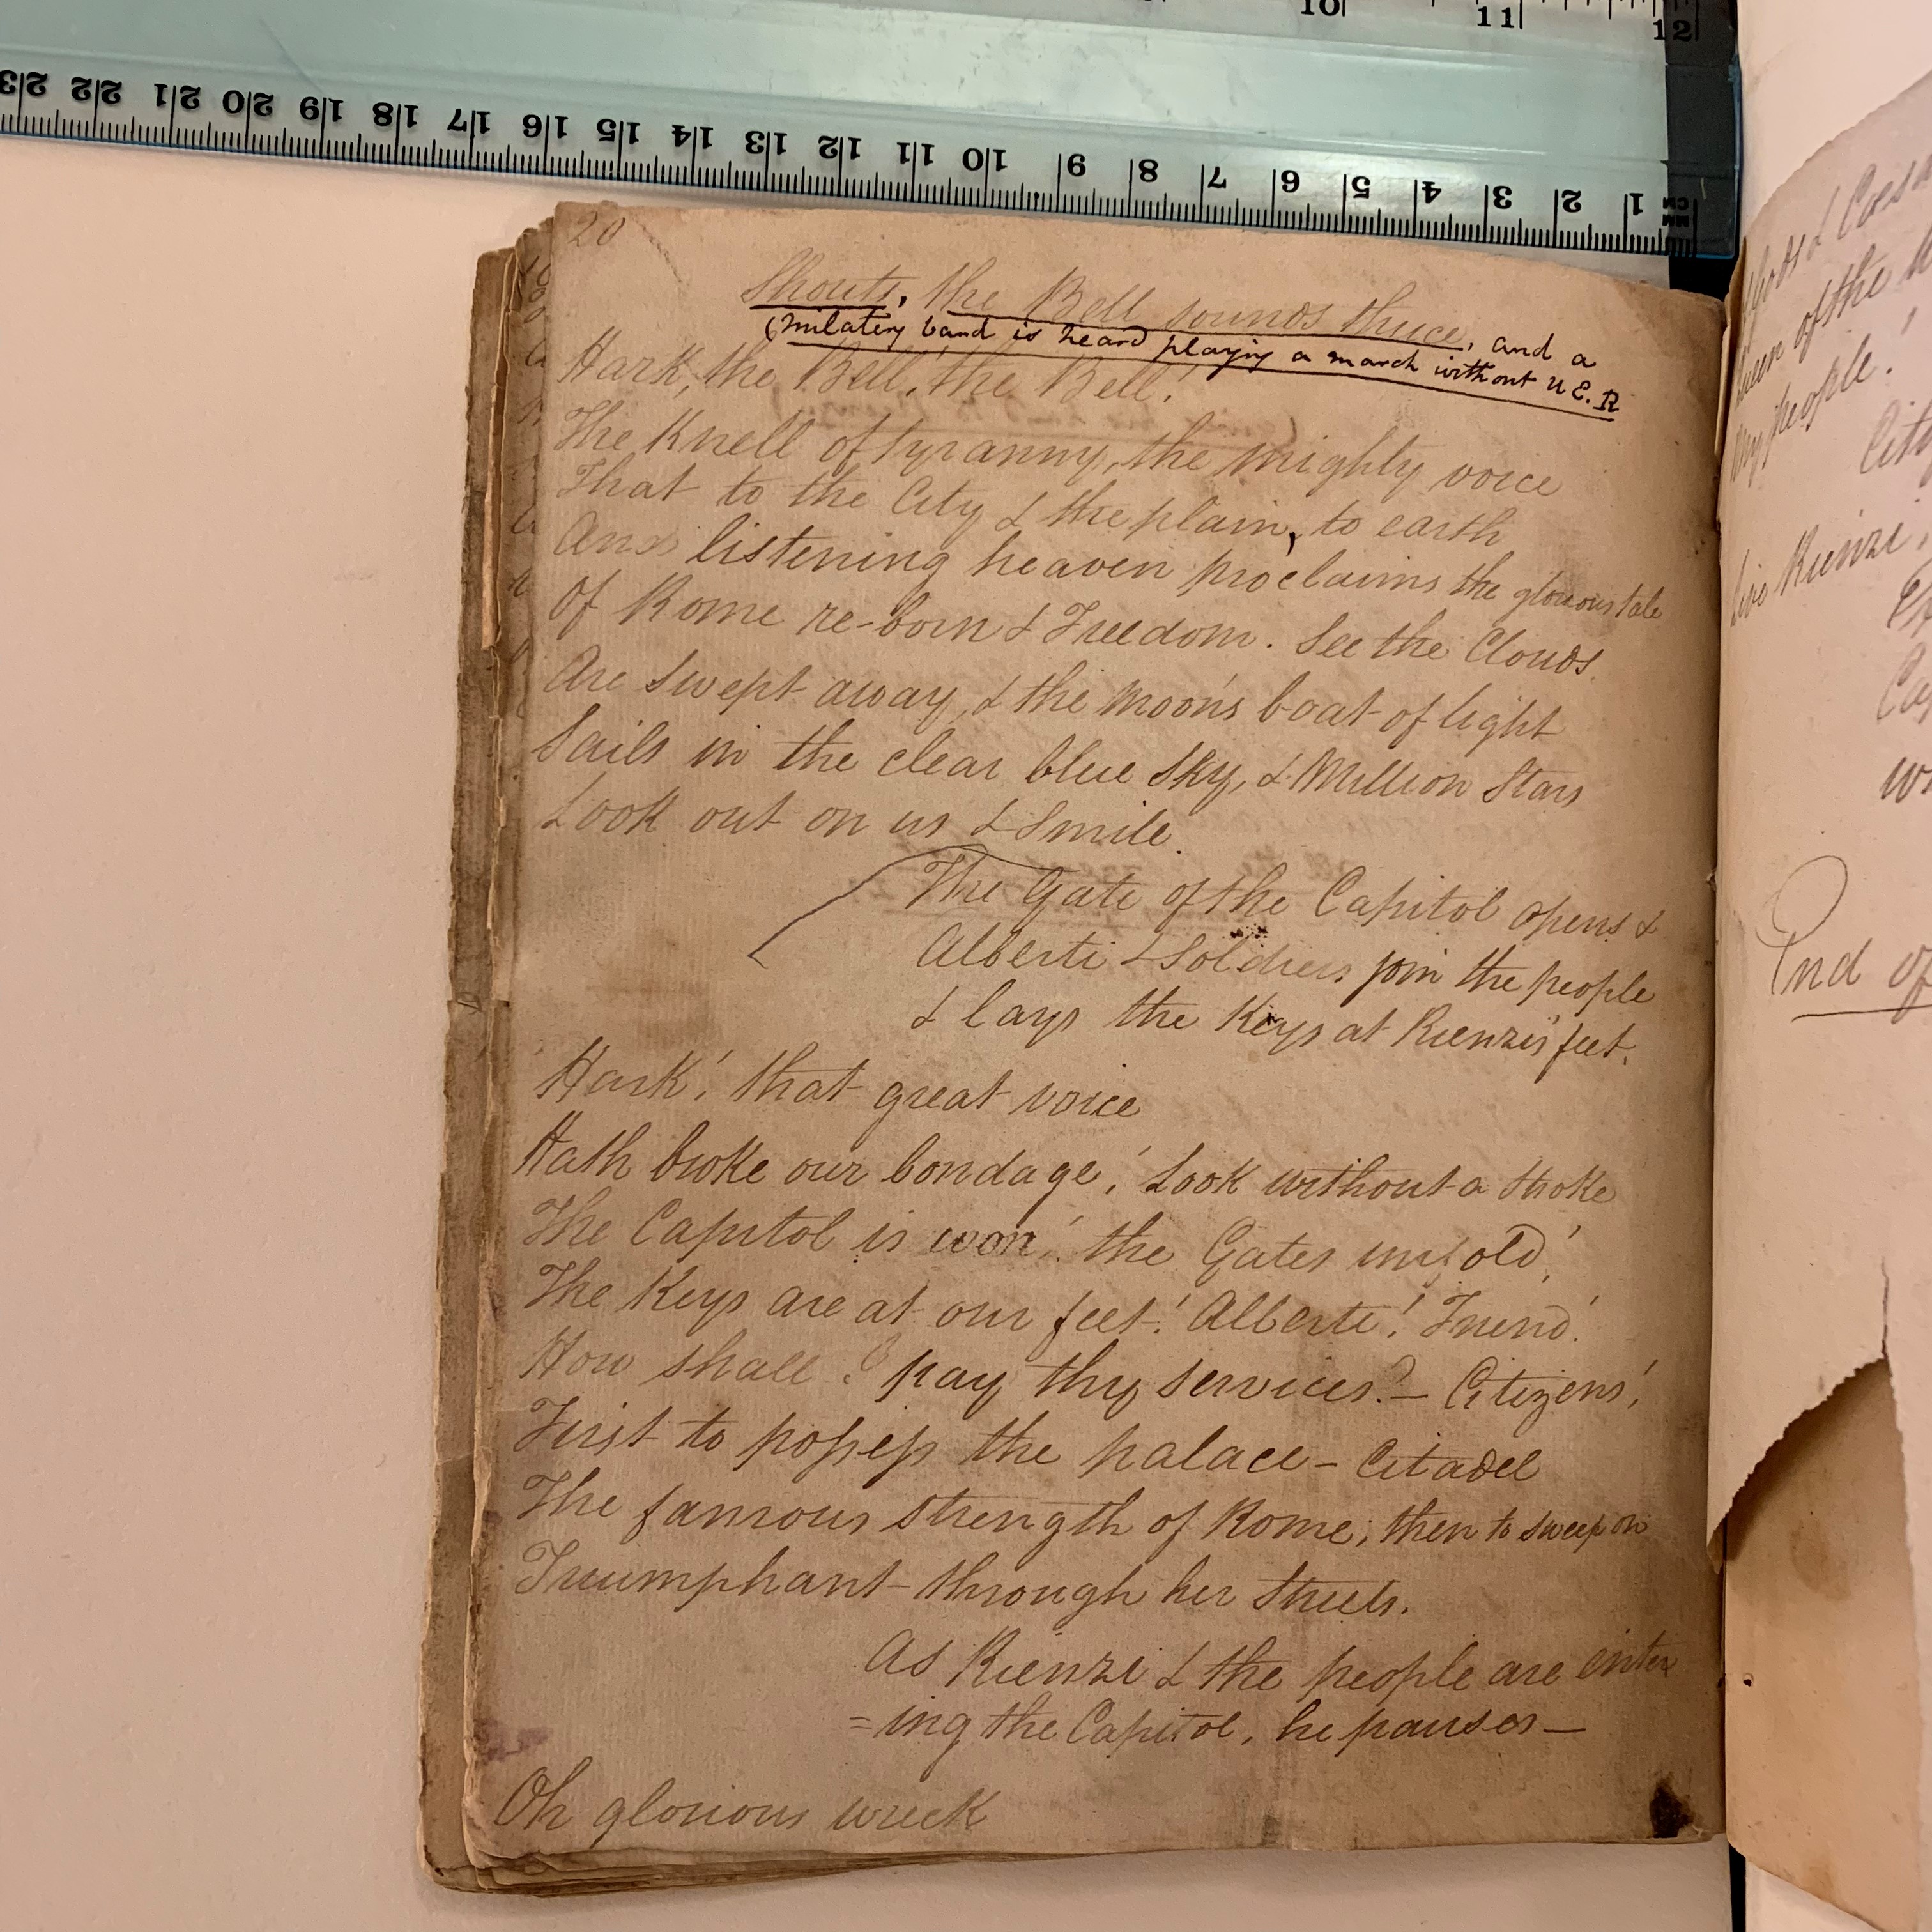 10 11 12
23 22 21 20 19 18 17 16 15 14 13 12 11 10 9 8 7 6 5 4 3 2 1 MM CM
20
Shouts, the Bell sounds thrice, and a
(milatery band is heard playing a march without U.E.R
Hark, the Bell, the Bell!
The Knell of tyranny, the mighty voice
That to the City & the plain, to earth
And listening heaven proclaims the glorious tale
Of Rome re-born & Freedom. See the Clouds
Are swept away, & the Moon's boat of light
Sails in the clear blue sky, & Million Stars
Look out on us & Smile.
The Gate of the Capitol opens &
Alberti & Soldiers join the people
& lays the Keys at Rienzi's feet.
Hark! that great voice
Hath broke our bondage! Look without a stroke
The Capitol is won! the Gates unfold!
The Keys are at our feet! Alberti! Friend!
How shall I pay thy services? — Citizens!
First to possess the palace - Citadel
The famous strength of Rome; then to sweep on
Triumphant through her streets.
As Rienzi & the people are enter
=ing the Capitol, he pauses —
Oh glorious wreck
of the
My people!
Live Rienzi!
End of